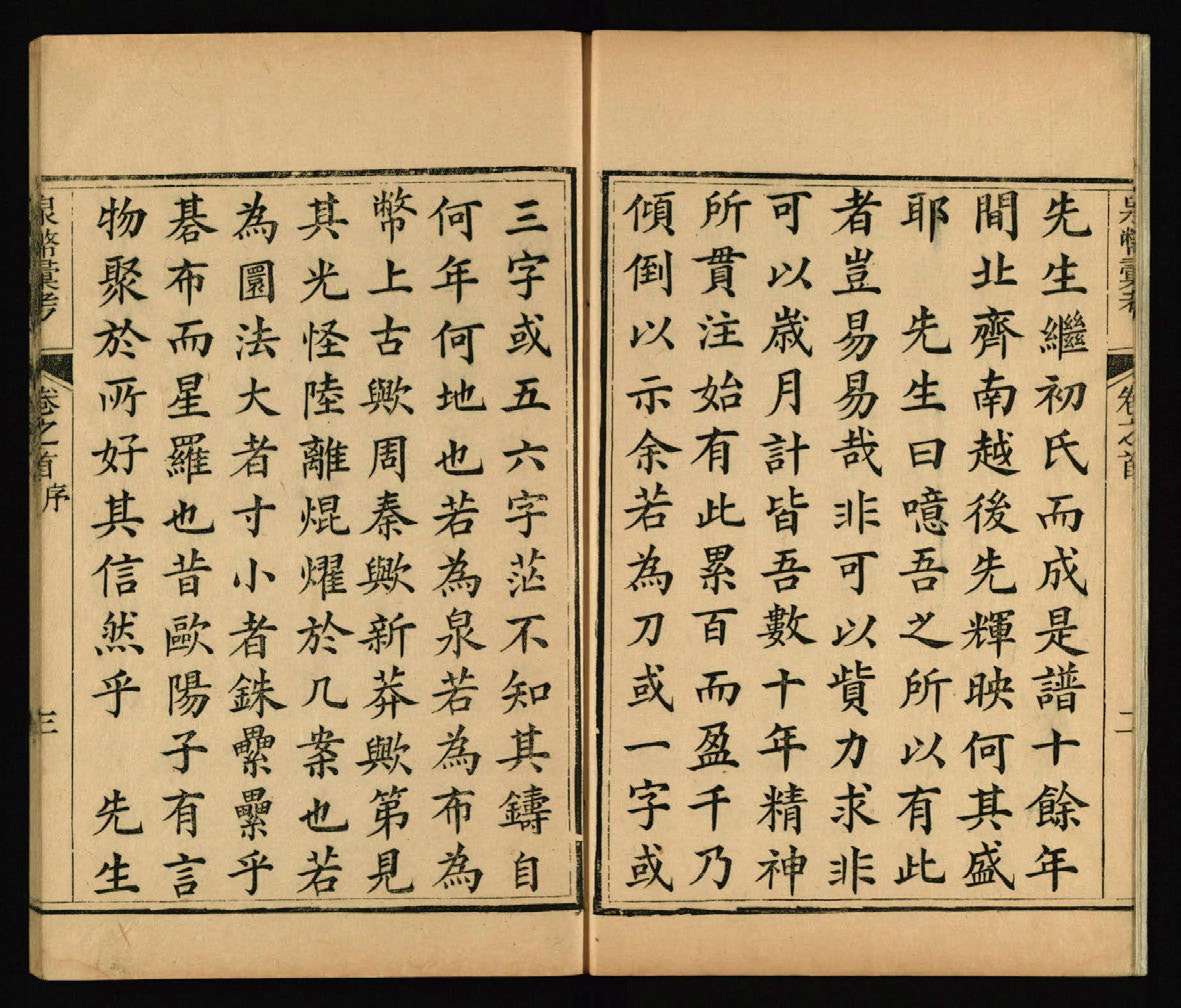 泉幣彙考 卷之首 二
先生繼初氏而成是譜十餘年
間北齊南越後先輝映何其盛
耶 先生曰噫吾之所以有此
者豈易易哉非可以貲力求非
可以歲月計皆吾數十年精神
所貫注始有此累百而盈千乃
傾倒以示余若為刀或一字或
三字或五六字茫不知其鑄自
何年何地也若為泉若為布為
幣上古歟周秦歟新莽歟第見
其光怪陸離焜燿於几案也若
為圜法大者寸小者銖纍纍乎
碁布而星羅也昔歐陽子有言
物聚於所好其信然乎 先生
泉幣彙考 卷之首 序 三